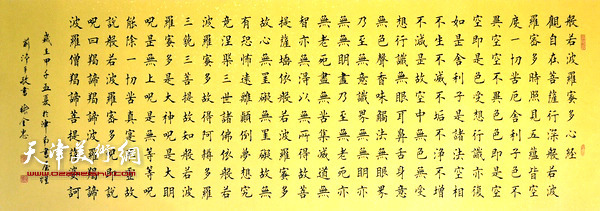 般若波羅蜜多心經
觀自在菩薩行深般若波
羅蜜多時照見五蘊皆空
度一切苦厄舍利子色不
異空空不異色色即是空
空即是色受想行識亦復
如是舍利子是諸法空相
不生不滅不垢不淨不增
不減是故空中無色無受
想行識無眼耳鼻舌身意
無色聲香味觸法無眼界
乃至無意識界無無明亦
無無明盡乃至無老死亦
無老死盡無苦集滅道無
智亦無得以無所得故菩
提薩埵依般若波羅蜜多
故心無罣礙無罣礙故無
有恐怖遠離顛倒夢想究
竟涅槃三世諸佛依般若
波羅蜜多故得阿耨多羅
三藐三菩提故知般若波
羅蜜多是大神呪是大明
呪是無上呪是無等等呪
能除一切苦真實不虛故
說般若波羅蜜多呪即說
呪曰羯諦羯諦波羅羯諦
波羅僧羯諦菩提薩婆訶
天津美術網